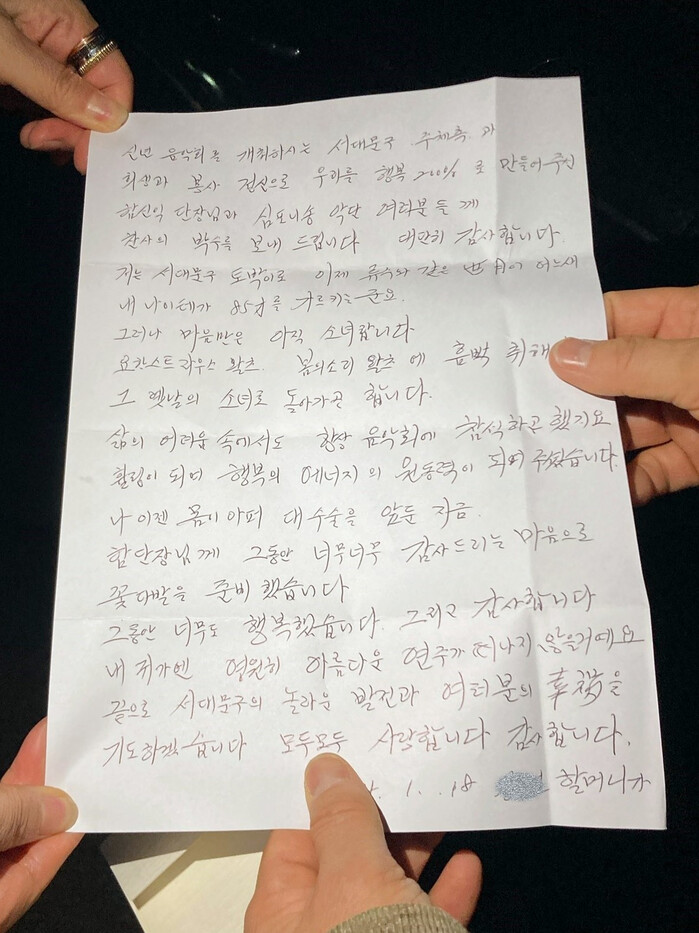 신년 음악회를 개최하시는 서대문구 주최측과
희생과 봉사 정신으로 우리를 행복 200%로 만들어주신
함신익 단장님과 심포니송 악단 여러분들께
찬사의 박수를 보내 드립니다 대단히 감사합니다.
저는 서대문구 토박이로 이제 류수와 같은 世月이 어느새
내 나이테가 85才를 가르키는군요.
그러나 마음만은 아직 소녀랍니다
요한스트라우스 왈츠. 봄의소리 왈츠에 흠뻑 취해
그 옛날의 소녀로 돌아가곤 합니다.
삶의 어려움 속에서도 항상 음악회에 참석하곤 했지요
힐링이 되며 행복의 에너지의 원동력이 되어 주셨습니다.
나 이젠 몸이 아퍼 대수술을 앞둔 지금.
함단장님께 그동안 너무너무 감사드리는 마음으로
꽃다발을 준비 했습니다
그동안 너무도 행복했습니다. 그리고 감사합니다
내 귀가엔 영원히 아름다운 연주가 떠나지 않을거예요
끝으로 서대문구의 놀라운 발전과 여러분의 幸福을
기도하겠습니다 모두모두 사랑합니다 감사합니다.
1. .18 할머니가